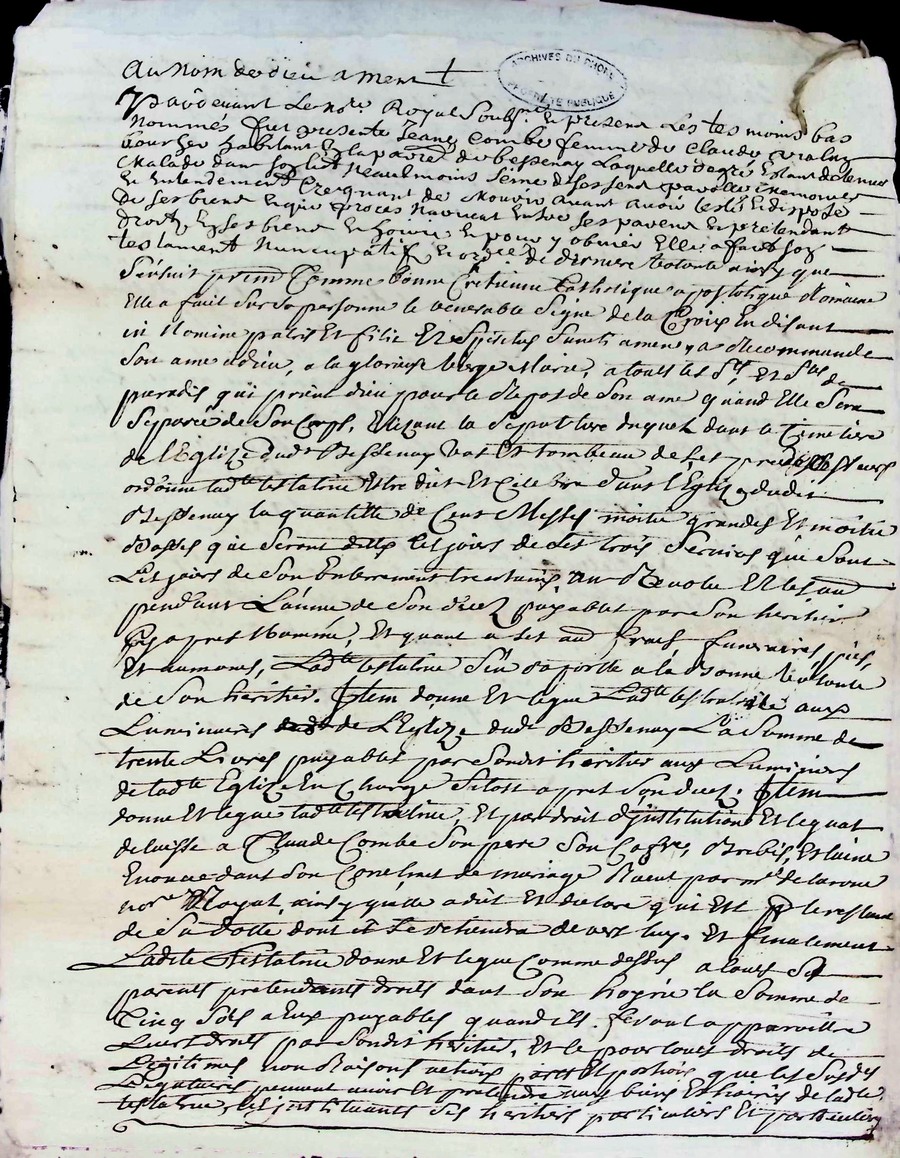 Au Nom de dieu amen
ARCHIVES DU RHONE
PROPRIÉTÉ PUBLIQUE
pardevant Le no.re Royal Soubs.e Et presens Les tesmoins bas
nommés fut presente Jeane Combe femme de Claude
habitant La parre de bessenay Laquelle de gre Estant detenue
Malade dans son lit Neaulmoins saine de ses sens parolle memoire
Et Entendement Creignant de Mourir avant avoir teste Et disposé
De ses biens Et que proces Naucent Entre ses parens Et pretendants
droits En ses biens Et pour y obvier Elle a fait son
testament Nuncupatif Et de derniere volonte ainsy que
Sensuit prem.t Comme bonne Cretienne Catholique apostolique Romaine
Elle a fait Sur Sa personne le venerable Signe de la Croix En disant
in Nomine patris Et filii Et Spiritus Sancti amen, a Recommandé
Son ame a dieu, a la glorieuse Vierge Marie, a touts les S.ts Et S.tes de
paradis qui prient dieu pour le Repos de Son ame quand Elle Sera
Separée de Son Corps, Elizant la Sepulture duquel dans le Cimetiere
de l'Eglize dud.t Bessenay Et tombeau de Ses predecesseurs
ordonne lad.te testatrice Estre dict Et Celebre dans l'Eglize dudit
Bessenay la quantitté de Cent Messes moitié grandes Et moitié
Basses qui Seront dittes les jours de Ses trois Services qui Sont
Les jours de Son Enterrement trentaine an Revolu Et le tout
pendant L'année de Son decez payables par Son heritier
Cy apres Nommé, Et quant a Ses aut. fraits funeraires, pies,
Et aumones, Lad.te testatrice S'en raporte a la Bonne Volonté
de Son heritier. Item donne Et legue Lad.te testatrice aux
Luminaires de L'Eglize dud.t Bessenay La Somme de
trente Livres payables par Sondit heritier aux Luminiers
de lad.te Eglize En Charge Sitost apres Son decez. Item
donne Et legue lad.te testatrice, Et par droit d'institution Et legat
delaisse a Claude Combe Son pere Son Coffre, Brebis, Et laine
Enoncé dans Son Contract de mariage Receu par m.e delaroue
no.re Royal, ainsy qu'elle a dit Et declare qui Est le restant
de Sa dotte dont il Se retiendra devers luy. Et finalement
Ladite testatrice donne Et legue Comme dessus a touts Ses
parents pretendants droits dans Son hoyrie la Somme de
Cinq Sols a Eux payables quand ils feront apparoitre
Leurs droits par Sondit heritier, Et ce pour touts droits de
Legitimes non Raisons actions parts Et portions que les Susd.s
Legataires peuvent avoir Et pretendre aux biens Et hoirie de lad.te
testatrice, les instituants Ses heritiers particuliers Et